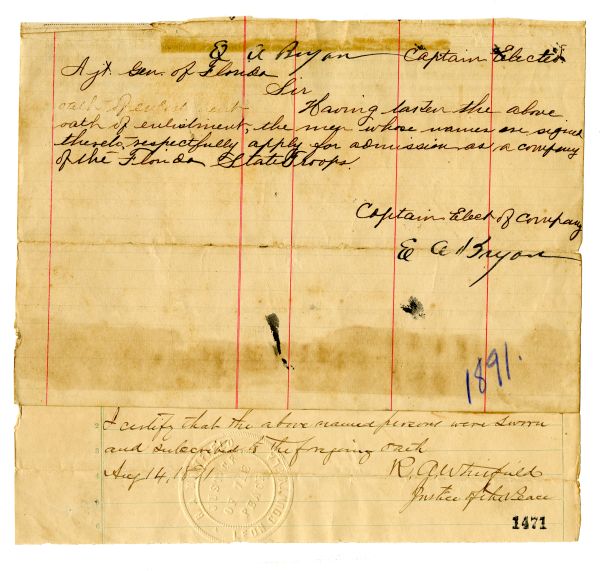 E A Bryan Captain Elected
Ajt. Gen. of Florida
Sir
Having taken the above
oath of enlistment, the men whose names are signed
thereto, respectfully apply for admission as a company
of the Florida State Troops.
Captain Elect of Company
E A Bryan
1891.
I certify that the above named persons were sworn
and subscribed to the foregoing oath
Aug 14, 1891
R. A. Whitfield
Justice of the Peace
1471